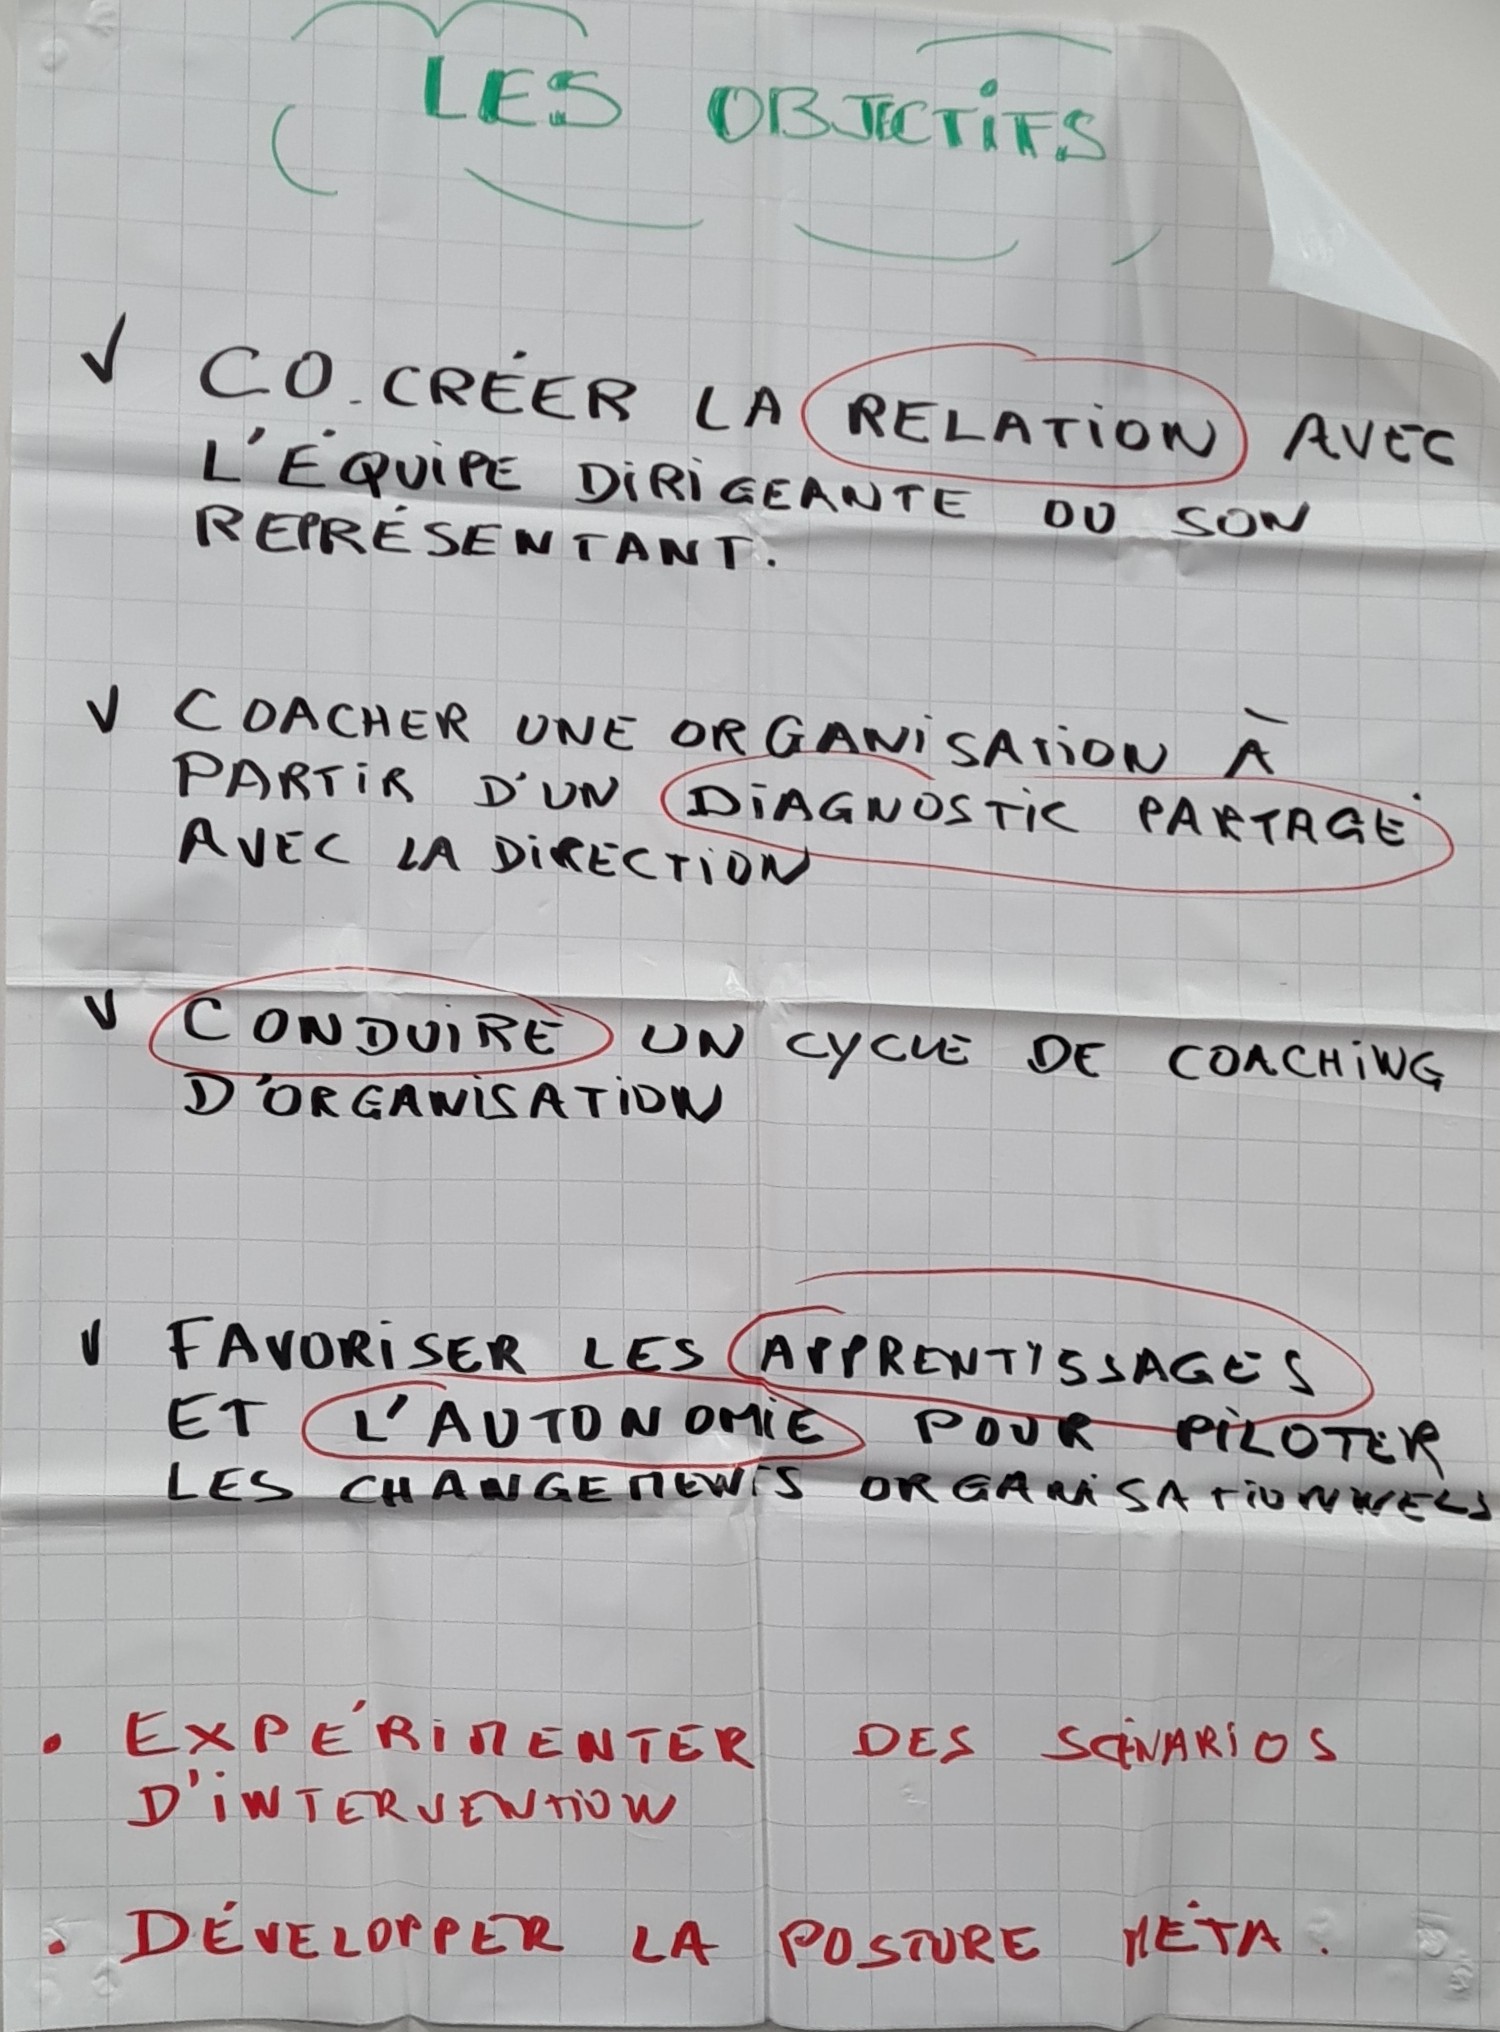 LES OBJECTIFS
✓ CO-CRÉER LA RELATION AVEC
L'ÉQUIPE DIRIGEANTE OU SON
REPRÉSENTANT.
✓ COACHER UNE ORGANISATION À
PARTIR D'UN DIAGNOSTIC PARTAGÉ
AVEC LA DIRECTION
✓ CONDUIRE UN CYCLE DE COACHING
D'ORGANISATION
✓ FAVORISER LES APPRENTISSAGES
ET L'AUTONOMIE POUR PILOTER
LES CHANGEMENTS ORGANISATIONNELS
• EXPÉRIMENTER DES SCÉNARIOS
D'INTERVENTION
• DÉVELOPPER LA POSTURE MÉTA.